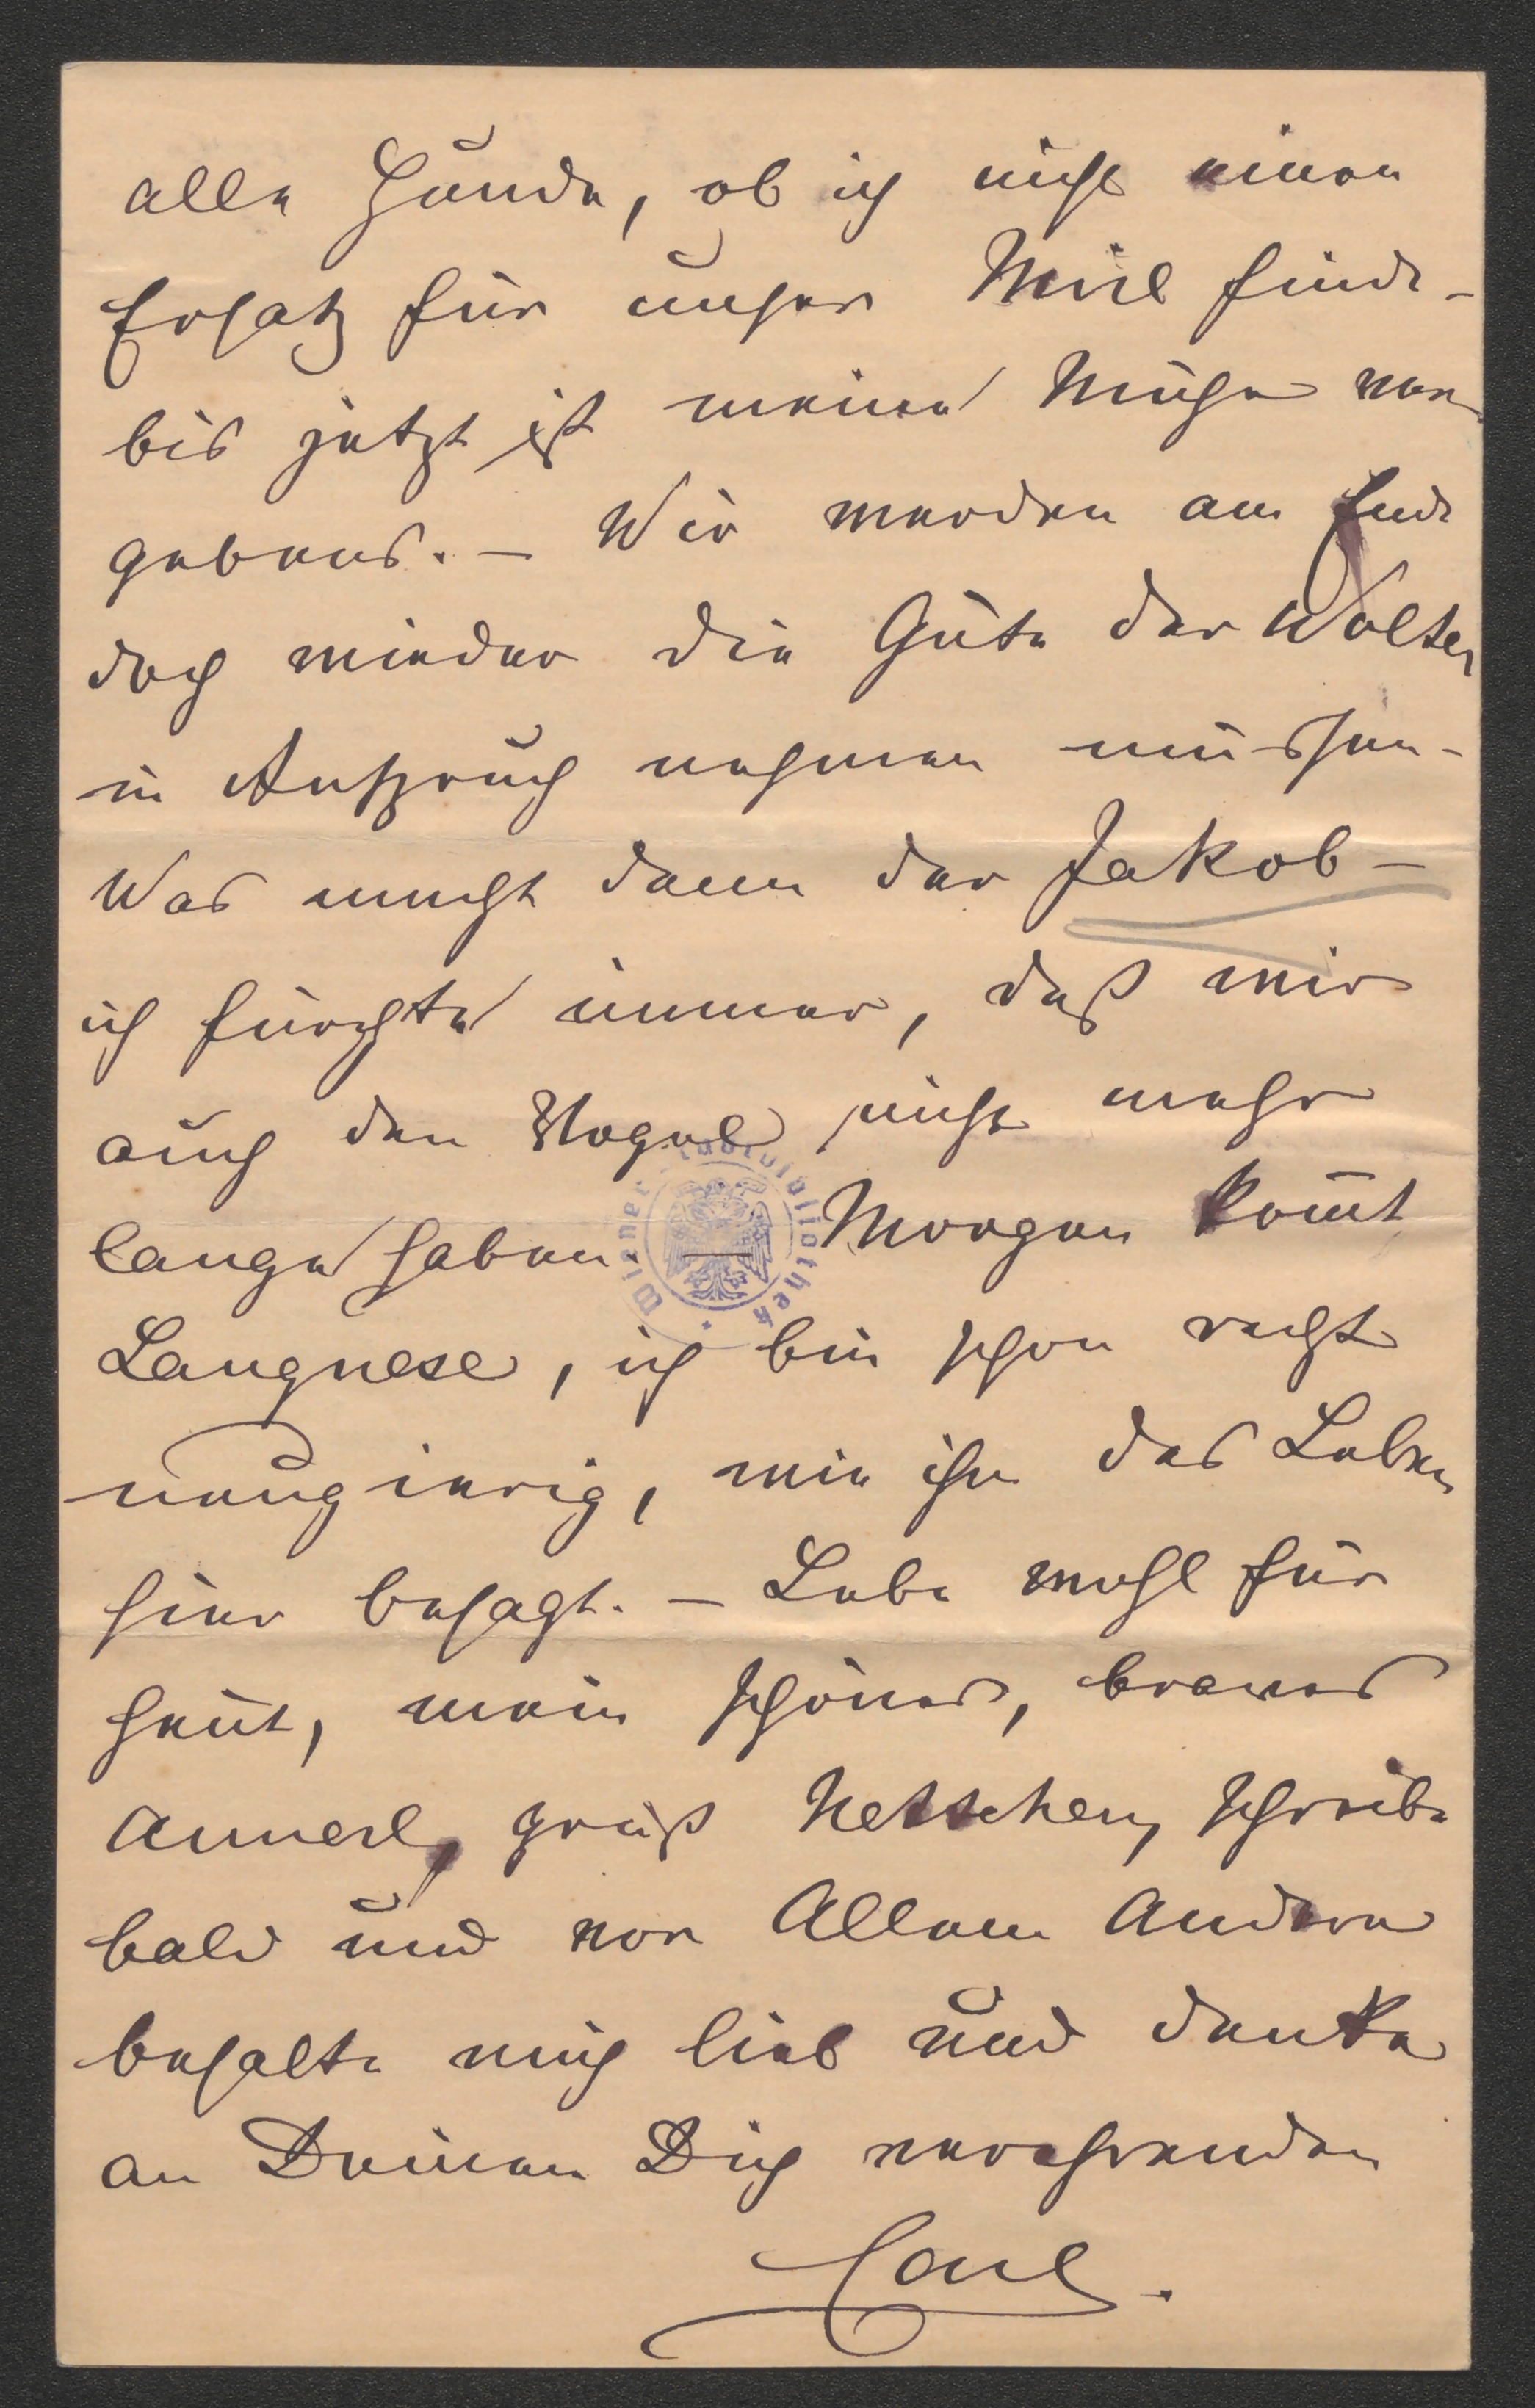 alle Hunde, ob ich nicht einen
Ersatz für unser Mirl finde -
bis jetzt ist meine Mühe ver
gebens. – Wir werden am Ende
doch wieder die Güte der Wolter
in Anspruch nehmen müssen -
Was macht denn der Jakob –
ich fürchte immer, daß wir
auch den Vogel nicht mehr
lange haben. — Morgen kom̅t
Wiener Stadtbibliothek
Langnese, ich bin schon recht
neugierig, wie ihm das Leben
hier behagt. – Lebe wohl für
heut, mein schönes, braves
Annerl, grüß Netschen, schreibe
bald und vor Allem Andern
behalte mich lieb und denke
an Deinen Dich verehrenden
Carl.